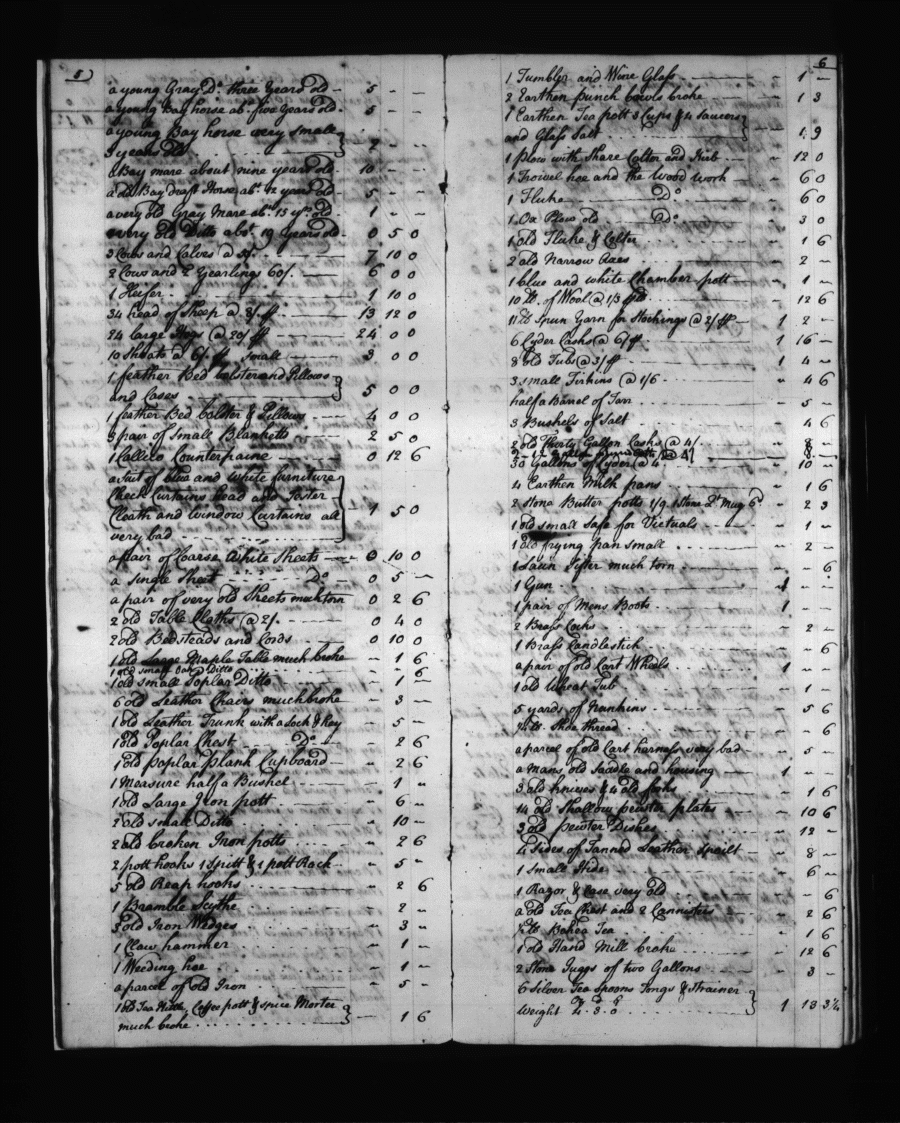 5
a young Gray Do. three Years old - 5 - -
a young Bay horse abt. five Years old - 5 - -
a young Bay horse very small
3 years old - 2 - -
a Bay mare about nine years old - 10 - -
a do. Bay draft Horse abt. 12 years old - 5 - -
a very old Gray Mare abt. 15 yrs. old - 1 - -
very old Ditto abt. 19 Years old - 0 5 0
3 Cows and Calves @ 7 10 0
2 Cows and 2 Yearlings 60/. 6 00 0
1 Heifer 1 10 0
34 head of Sheep @ 8/. 13 12 0
24 large Hogs @ 20/ 24 0 0
10 Shoats @ 6/. small 3 00 0
1 feather Bed bolster and Pillows
and Cases 5 0 0
1 feather Bed bolster & Pillows 4 0 0
3 pair of Small Blanketts 2 5 0
1 Callico Counterpaine 0 12 6
a Suit of blue and white furniture
Check Curtains head and Tester
Cloath and window Curtains all
very bad 1 5 0
a pair of Coarse White Sheets 0 10 0
a Single Sheet Do 0 5 -
a pair of very old Sheets much torn 0 2 6
2 old Table Cloths @ 2/. 0 4 0
2 old Bedsteads and Cords 0 10 0
1 old Large Maple Table much broke - 1 6
1 old small Ditto - 6
1 old small Poplar Ditto - 1 -
6 old Leather Chairs much broke - 3 -
1 old Leather Trunk with a Lock & Key - 5 -
1 old Poplar Chest Do - 2 6
1 old Poplar Plank Cupboard - 2 6
1 Measure half a Bushel - 1 -
1 old Large Iron pott - 6 -
2 old small Ditto - 10 -
2 old broken Iron potts - 2 6
2 pott hooks 1 Spitt & 1 pott Rack - 5 -
5 old Reap hooks - 2 6
1 Bramble Scythe - 2 -
3 old Iron Wedges - 3 -
1 Claw hammer - 1 -
1 Weeding hoe - 1 -
a parcel of old Iron - 5 -
1 old Tea Kittle, Coffee pott & spice Morter
much broke - 1 6
6
1 Tumbler and Wine Glass - 1 -
2 Earthen punch bowls broke - 1 3
1 Earthen Tea pott 3 Cups & 4 Saucers
and Glass Salt - 1 9
1 Plow with Share Colter and - 12 0
1 Trowel hoe and the Wood work - 6 0
1 Fluke Do - 6 0
1 Ox Plow old Do - 3 0
1 old Fluke & Colter - 1 6
2 old Narrow Axes - 2 -
1 blue and white Chamber pott - 1 -
10 lb. of Wool @ 1/3 - 12 6
11 lb Spun Yarn for Stockings @ 2/ 1 2 -
6 Cyder Casks @ 6/ 1 16 -
8 old Tubs @ 3/ 1 4 -
3 small Firkins @ 1/6 - 4 6
half a Barrel of Tarr - 5 -
3 Bushels of Salt - 4 6
2 old Thirty Gallon Casks @ 4/ - 8 -
30 Gallons of Cyder @ 4 - 10 -
4 Earthen Milk pans - 1 6
2 Stone Butter potts 1/9 1 Stone Do Mug 6d - 2 3
1 old small Safe for Victuals - 1 -
1 old frying pan small - 2 -
1 Lawn Sifter much torn - - 6
1 Gun 1 - -
1 pair of Mens Boots 1 - -
2 Brass Cocks - 2 -
1 Brass Candlestick - - 6
a pair of old Cart Wheels 1 - -
1 old Wheat Tub - 1 -
5 yards of Nankins - 5 6
Shoe thread - - 6
a parcel of old Cart harness very bad - 5 -
a mans old Saddle and housing 1 - -
3 old knives & 4 old forks - 1 6
14 old Shallow pewter plates - 10 6
3 old pewter Dishes - 12 -
4 Sides of Tanned Leather Spoilt - 8 -
1 small Hide - 6 -
1 Razor & Case very old - - 6
a old Tea Chest and 2 Cannisters - 2 6
Bohea Tea - 1 6
1 old Hand Mill broke - 12 6
2 Stone Juggs of two Gallons - 3 -
6 Silver Tea Spoons Tongs & Strainer
Weight 1 18 3¼